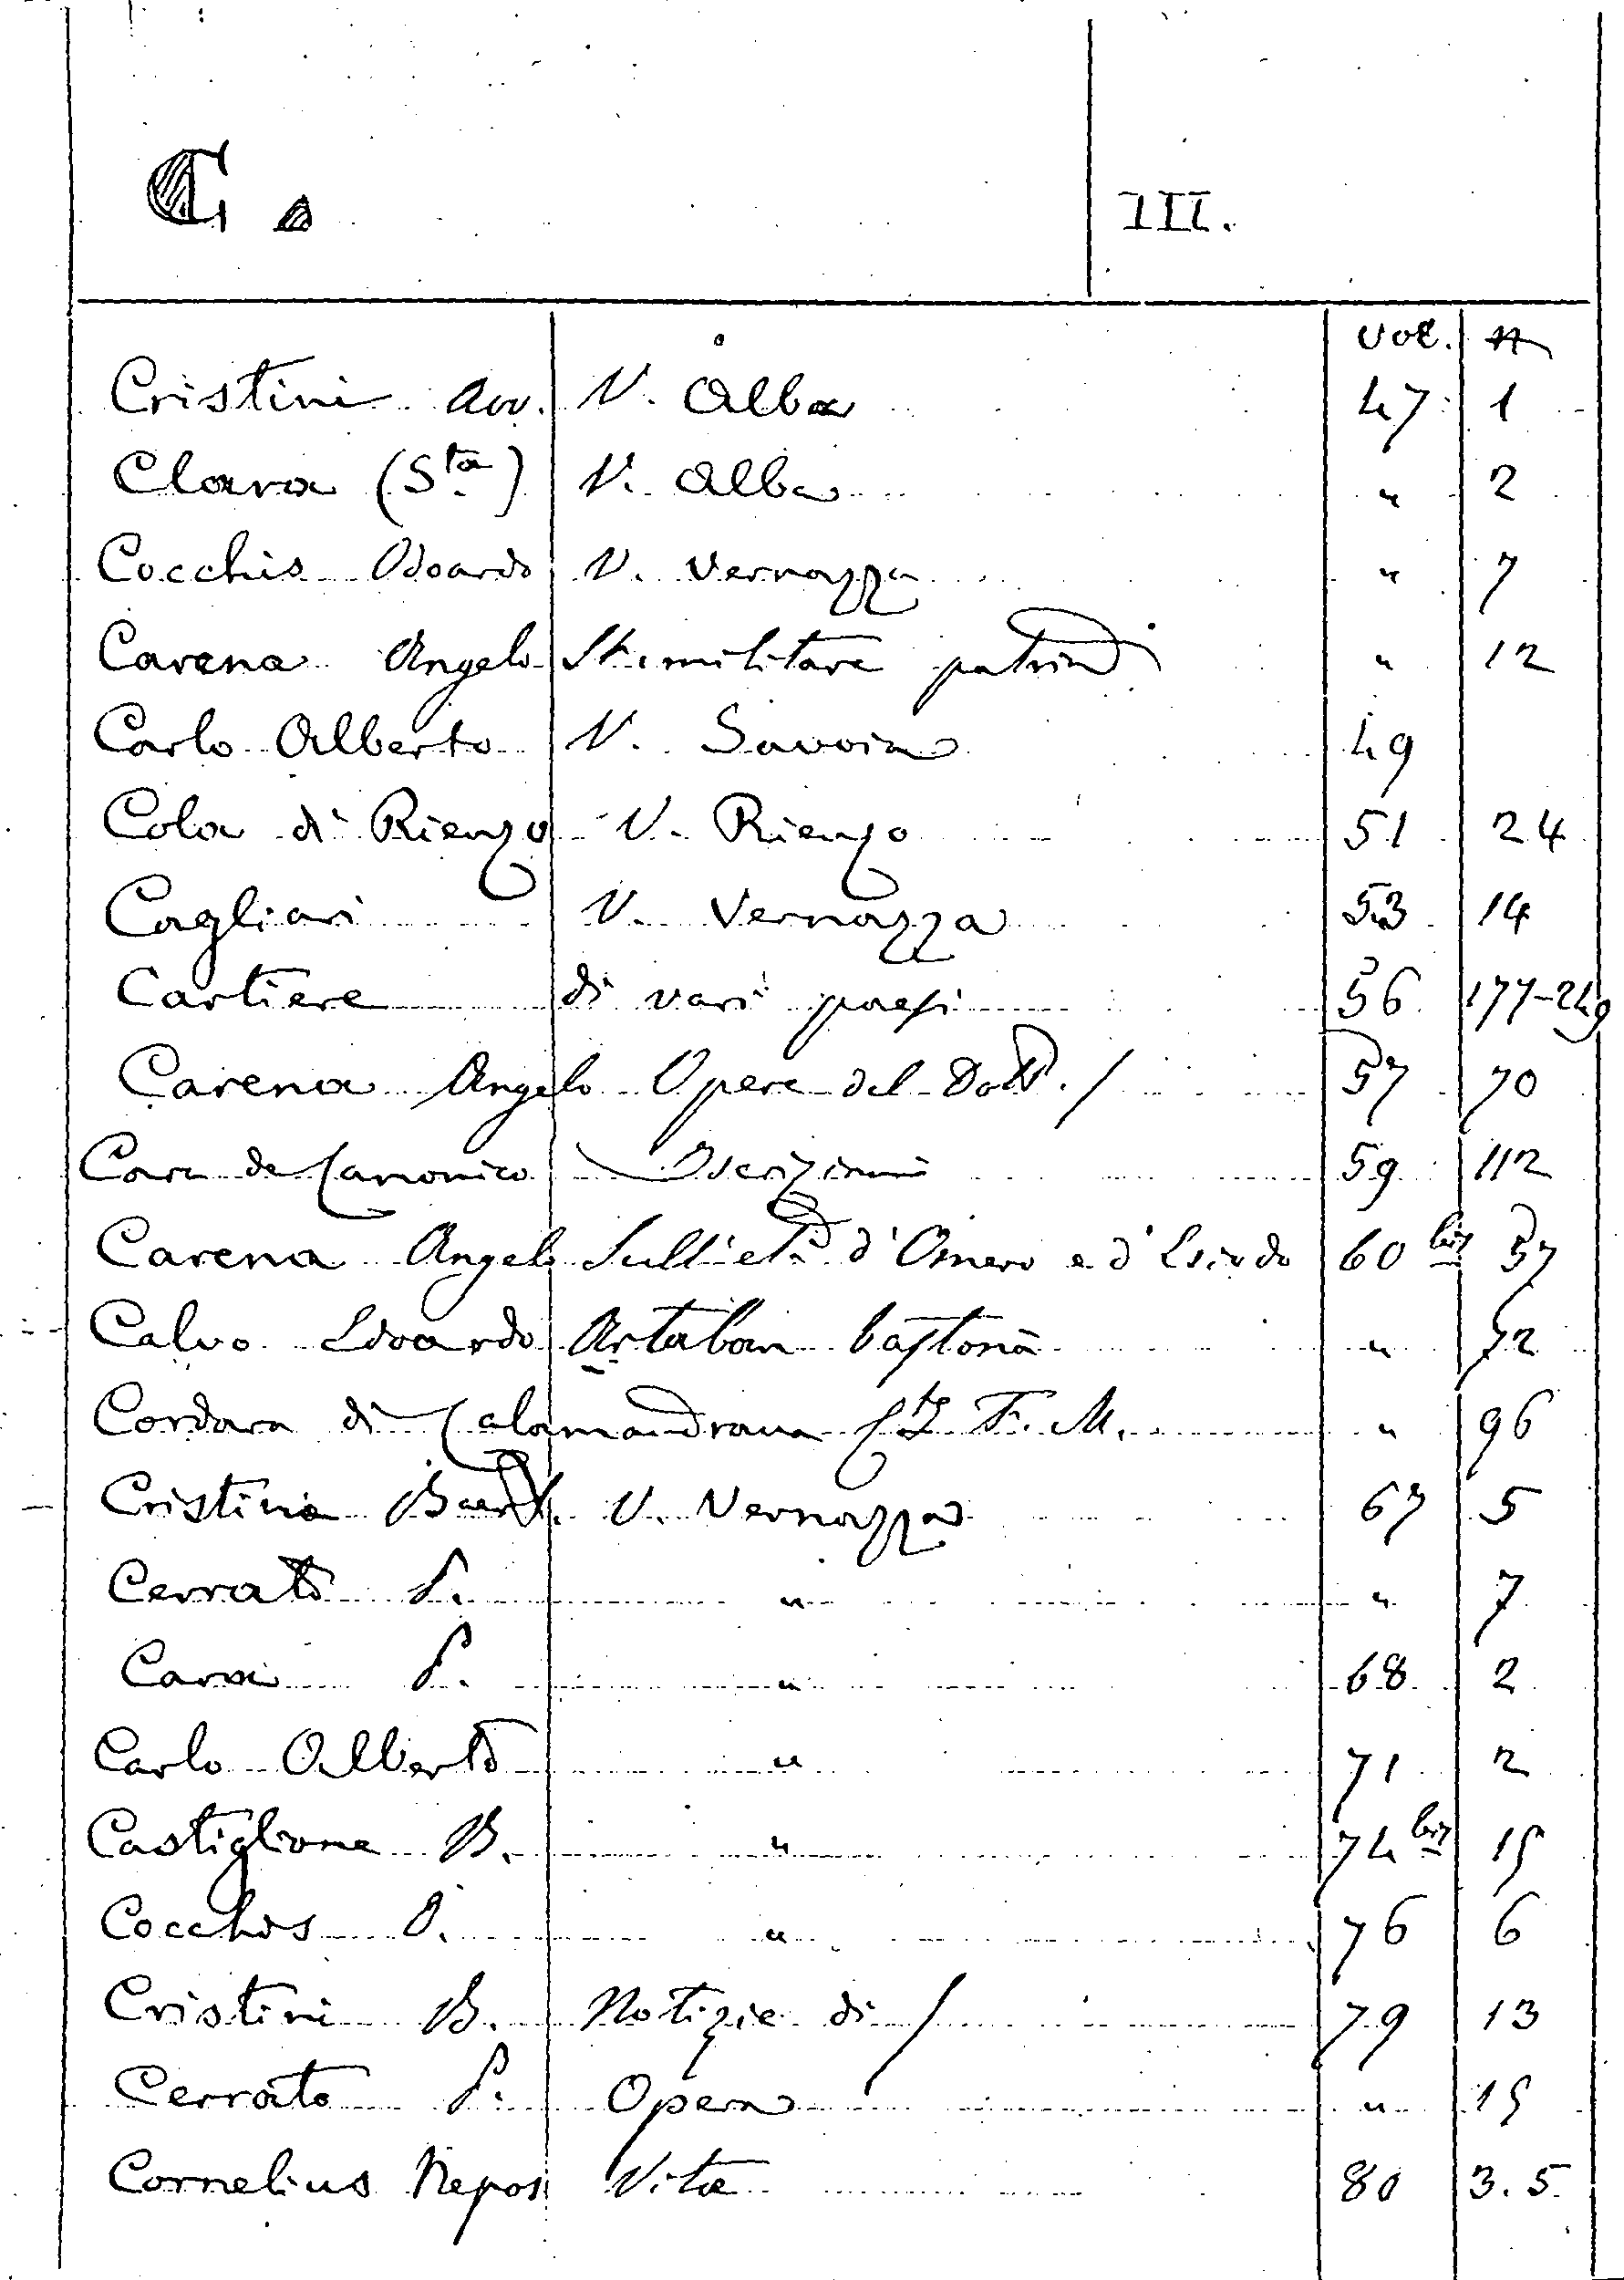 C.
III.
Vol. n
Cristini Avv. V. Alba 47 1
Clara (Sta) V. Alba " 2
Cocchis Odoardo V. Vernazza " 7
Carena Angelo St. militare patria " 12
Carlo Alberto V. Savoia 49
Cola di Rienzo V. Rienzo 51 24
Cagliari V. Vernazza 53 14
Cartiere di vari paesi 56 177-249
Carena Angelo Opere del Dott. / 57 70
Cara de Canonico Iscrizioni 59 112
Carena Angelo Sull'età d'Omero e d'Esiodo 60 bis 37
Calvo Edoardo Artaban bastonà " 52
Cordara di Calamandrana F. M. " 96
Cristini V. Vernazza 67 5
Cerrato P. " " 7
Cara P. " 68 2
Carlo Alberto " 71 2
Castiglione B. " 74 bis 15
Cocchis O. " 76 6
Cristini B. Notizie di / 79 13
Cerrato P. Opera " 15
Cornelius Nepos Vitae 80 3.5